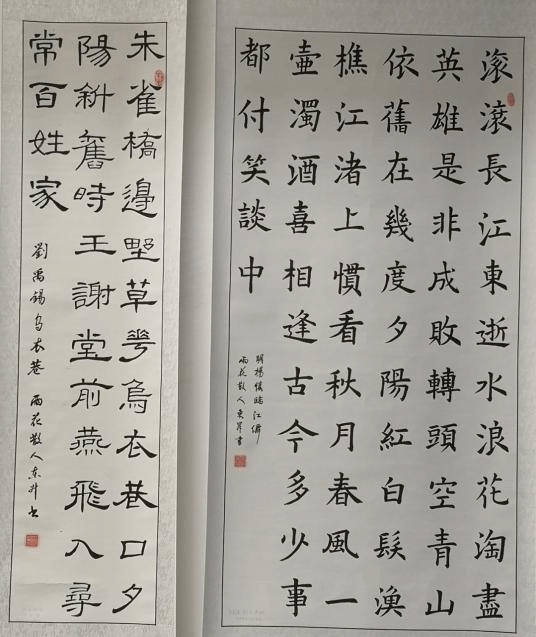 滾滾長江東逝水浪花淘盡
英雄是非成敗轉頭空青山
依舊在幾度夕陽紅白髮漁
樵江渚上慣看秋月春風一
壺濁酒喜相逢古今多少事
都付笑談中
明楊慎臨江僊
雨花散人東昇書
朱雀橋邊野草花烏衣巷口夕
陽斜舊時王謝堂前燕飛入尋
常百姓家
劉禹錫烏衣巷 雨花散人東升書